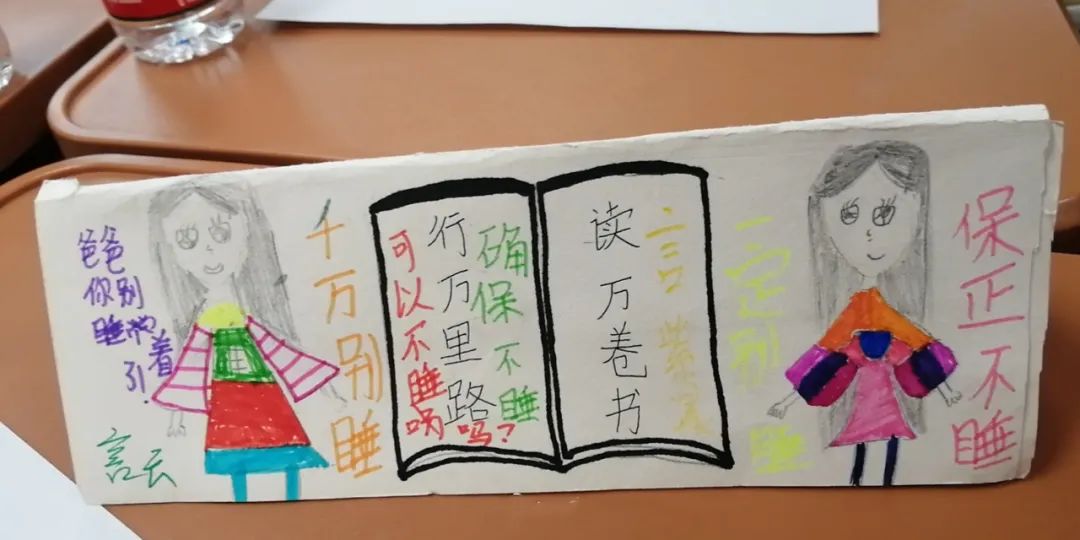 爸爸
你别
睡
着
千万别睡
可以不睡
吗?
行万里路
确保不睡
读万卷书
一定别睡
保正不睡